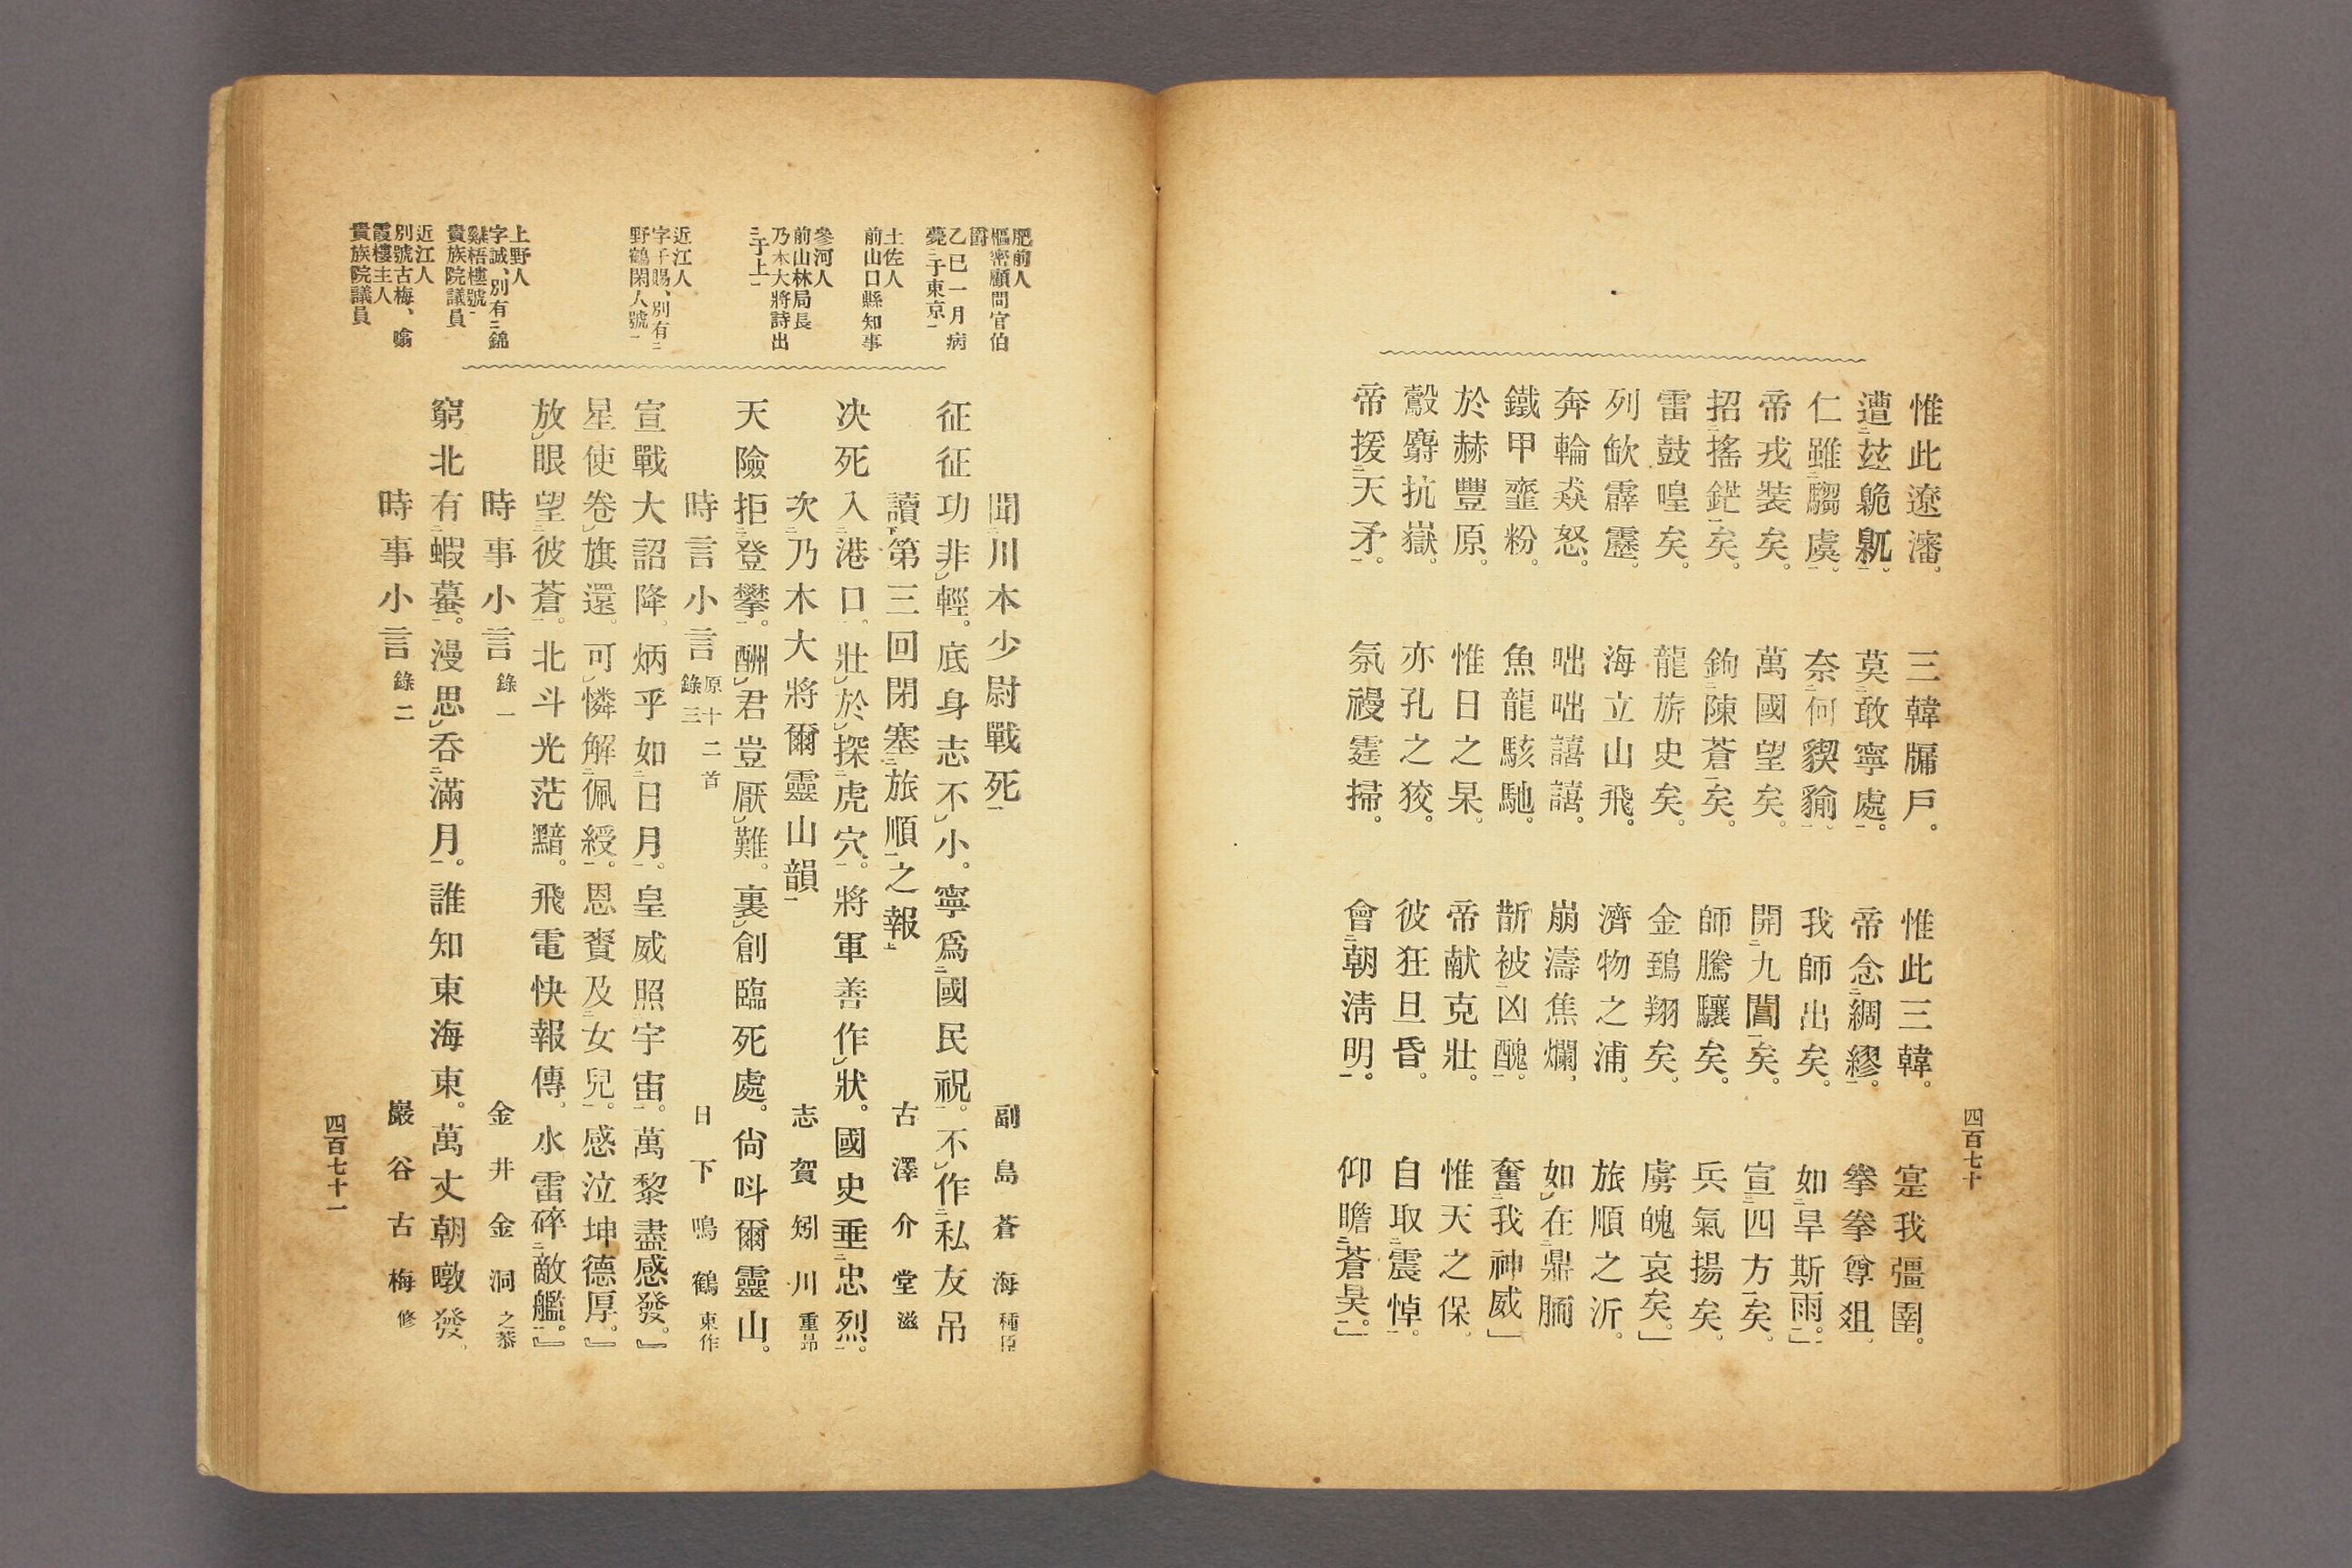 惟此遼瀋。三韓牖戶。惟此三韓。寔我彊圉。
遭茲臲卼。莫敢寧處。帝念綢繆。拳拳尊俎。
仁雖騶虞。奈何貏貐。我師出矣。如旱斯雨。」
帝戎裝矣。萬國望矣。開九閶矣。宣四方矣。
招搖鋩矣。鉤陳蒼矣。師騰驤矣。兵氣揚矣。
雷鼓喤矣。龍旂史矣。金鵄翔矣。虜魄哀矣。」
列缺霹靂。海立山飛。濟物之浦。旅順之沂。
奔輪猋怒。咄咄譆譆。崩濤焦爛。如在鼎胹
鐵甲虀粉。魚龍駭馳。斮被凶醜。奮我神威」
於赫豐原。惟日之杲。帝猷克壯。惟天之保。
鷇麛抗嶽。亦孔之狡。彼狂旦昏。自取震悼。
帝援天矛。氛祲霆掃。會朝淸明。仰瞻蒼昊。」
四百七十
肥前人
樞密顧問官伯
爵
乙巳一月病
薨二于東京一
土佐人
前山口縣知事
參河人
前山林局長
乃木大將詩出
二于上一
近江人
字子賜、別有二
野鶴閑人號一
上野人
字誠、別有二錦
雞梧樓號一
貴族院議員
近江人
別號古梅、噏
霞樓主人
貴族院議員
聞二川木少尉戰死一 副島蒼海種臣
征征功非レ輕。底身志不レ小。寧爲二國民祝一。不レ作二私友吊
讀下第三回閉塞二旅順一之報上 古澤介堂滋
决死入二港口一。壯レ於レ探二虎穴一。將軍善作レ狀。國史垂二忠烈一。
次二乃木大將爾靈山韻一 志賀矧川重昂
天險拒二登攀一。酬レ君豈厭レ難。裹レ創臨死處。尙呌爾靈山。
時言小言原十二首錄三 日下鳴鶴東作
宣戰大詔降。炳乎如二日月一。皇威照宇宙一。萬黎盡感發。』
星使卷レ旗還。可レ憐解二佩綬一。恩賚及二女兒一。感泣坤德厚。』
放レ眼望二彼蒼一。北斗光茫黯。飛電快報傳。水雷碎二敵艦一。』
時事小言錄一 金井金洞之恭
窮北有二蝦蟇一。漫思レ呑二滿月一。誰知東海東。萬丈朝暾發。
時事小言錄二 巖谷古梅修
四百七十一